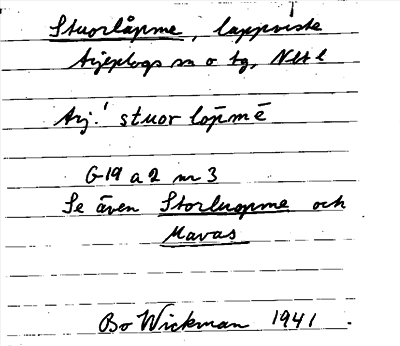 Stuorlåpme, lappviste
Arjeplogs sn o tg, Nlt l
Arj. stuor lōpmē
G 19 a 2 nr 3
Se även Storluopme och
Mavas
Bo Wickman 1941.